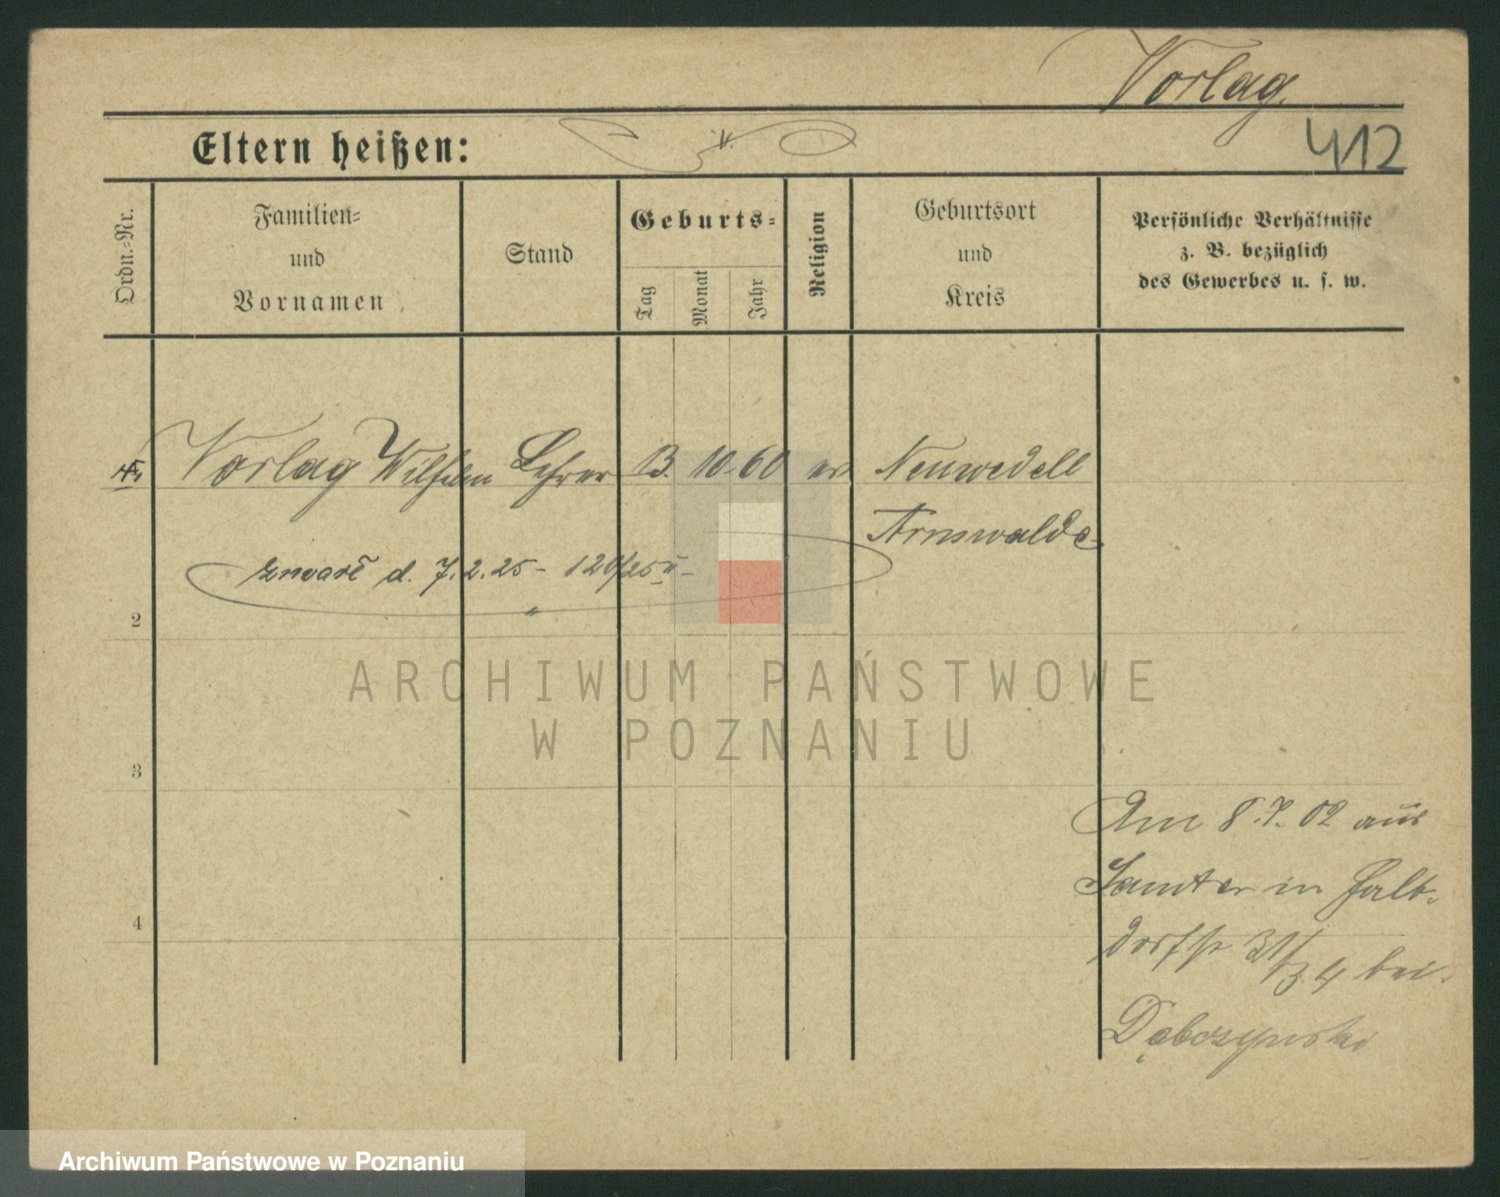 Vorlag.
412
Eltern heißen:
Ordn.-Nr.
Familien-
und
Vornamen
Stand
Geburts-
Tag
Monat
Jahr
Religion
Geburtsort
und
Kreis
Persönliche Verhältnisse
z. B. bezüglich
des Gewerbes u. s. w.
Vorlag Wilhelm Lehrer 13. 10 60 ev Neuwedell
Arnswalde
zmarł d. 7.2.25 - 120/25
2
ARCHIWUM PAŃSTWOWE
W POZNANIU
3
Am 8.7.02 aus
Samter in
4
31/3 4 bei
Dąbczynski
Archiwum Państwowe w Poznaniu